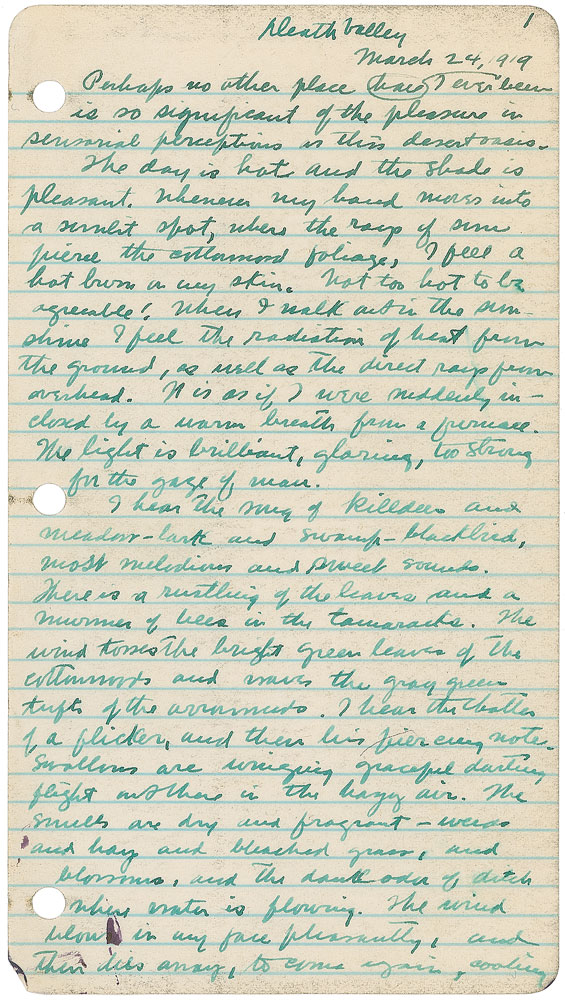 1
Death Valley
March 24, 1919
Perhaps no other place have I ever been
is so significant of the pleasure in
sensorial perceptions as this desert oasis.
The day is hot and the shade is
pleasant. Whenever my hand moves into
a sunlit spot, where the rays of sun
pierce the cottonwood foliage, I feel a
hot burn on my skin. Not too hot to be
agreeable! When I walk out in the sun-
shine I feel the radiation of heat from
the ground, as well as the direct rays from
overhead. It is as if I were suddenly in-
closed by a warm breath from a furnace.
The light is brilliant, glaring, too strong
for the gaze of man.
I hear the song of killdeer and
meadow-lark and swamp-blackbird,
most melodious and sweet sounds.
There is a rustling of the leaves and a
murmur of bees in the tamaracks. The
wind tosses the bright green leaves of the
cottonwoods and waves the gray green
tufts of the arrowweeds. I hear the
of a flicker, and then his piercing note.
Swallows are winging graceful darting
flight out there in the hazy air. The
smells are dry and fragrant - weeds
and hay and bleached grass, and
blossoms, and the dank odor of ditch
where water is flowing. The wind
blows in my face pleasantly, and
then dies away, to come again, cooling